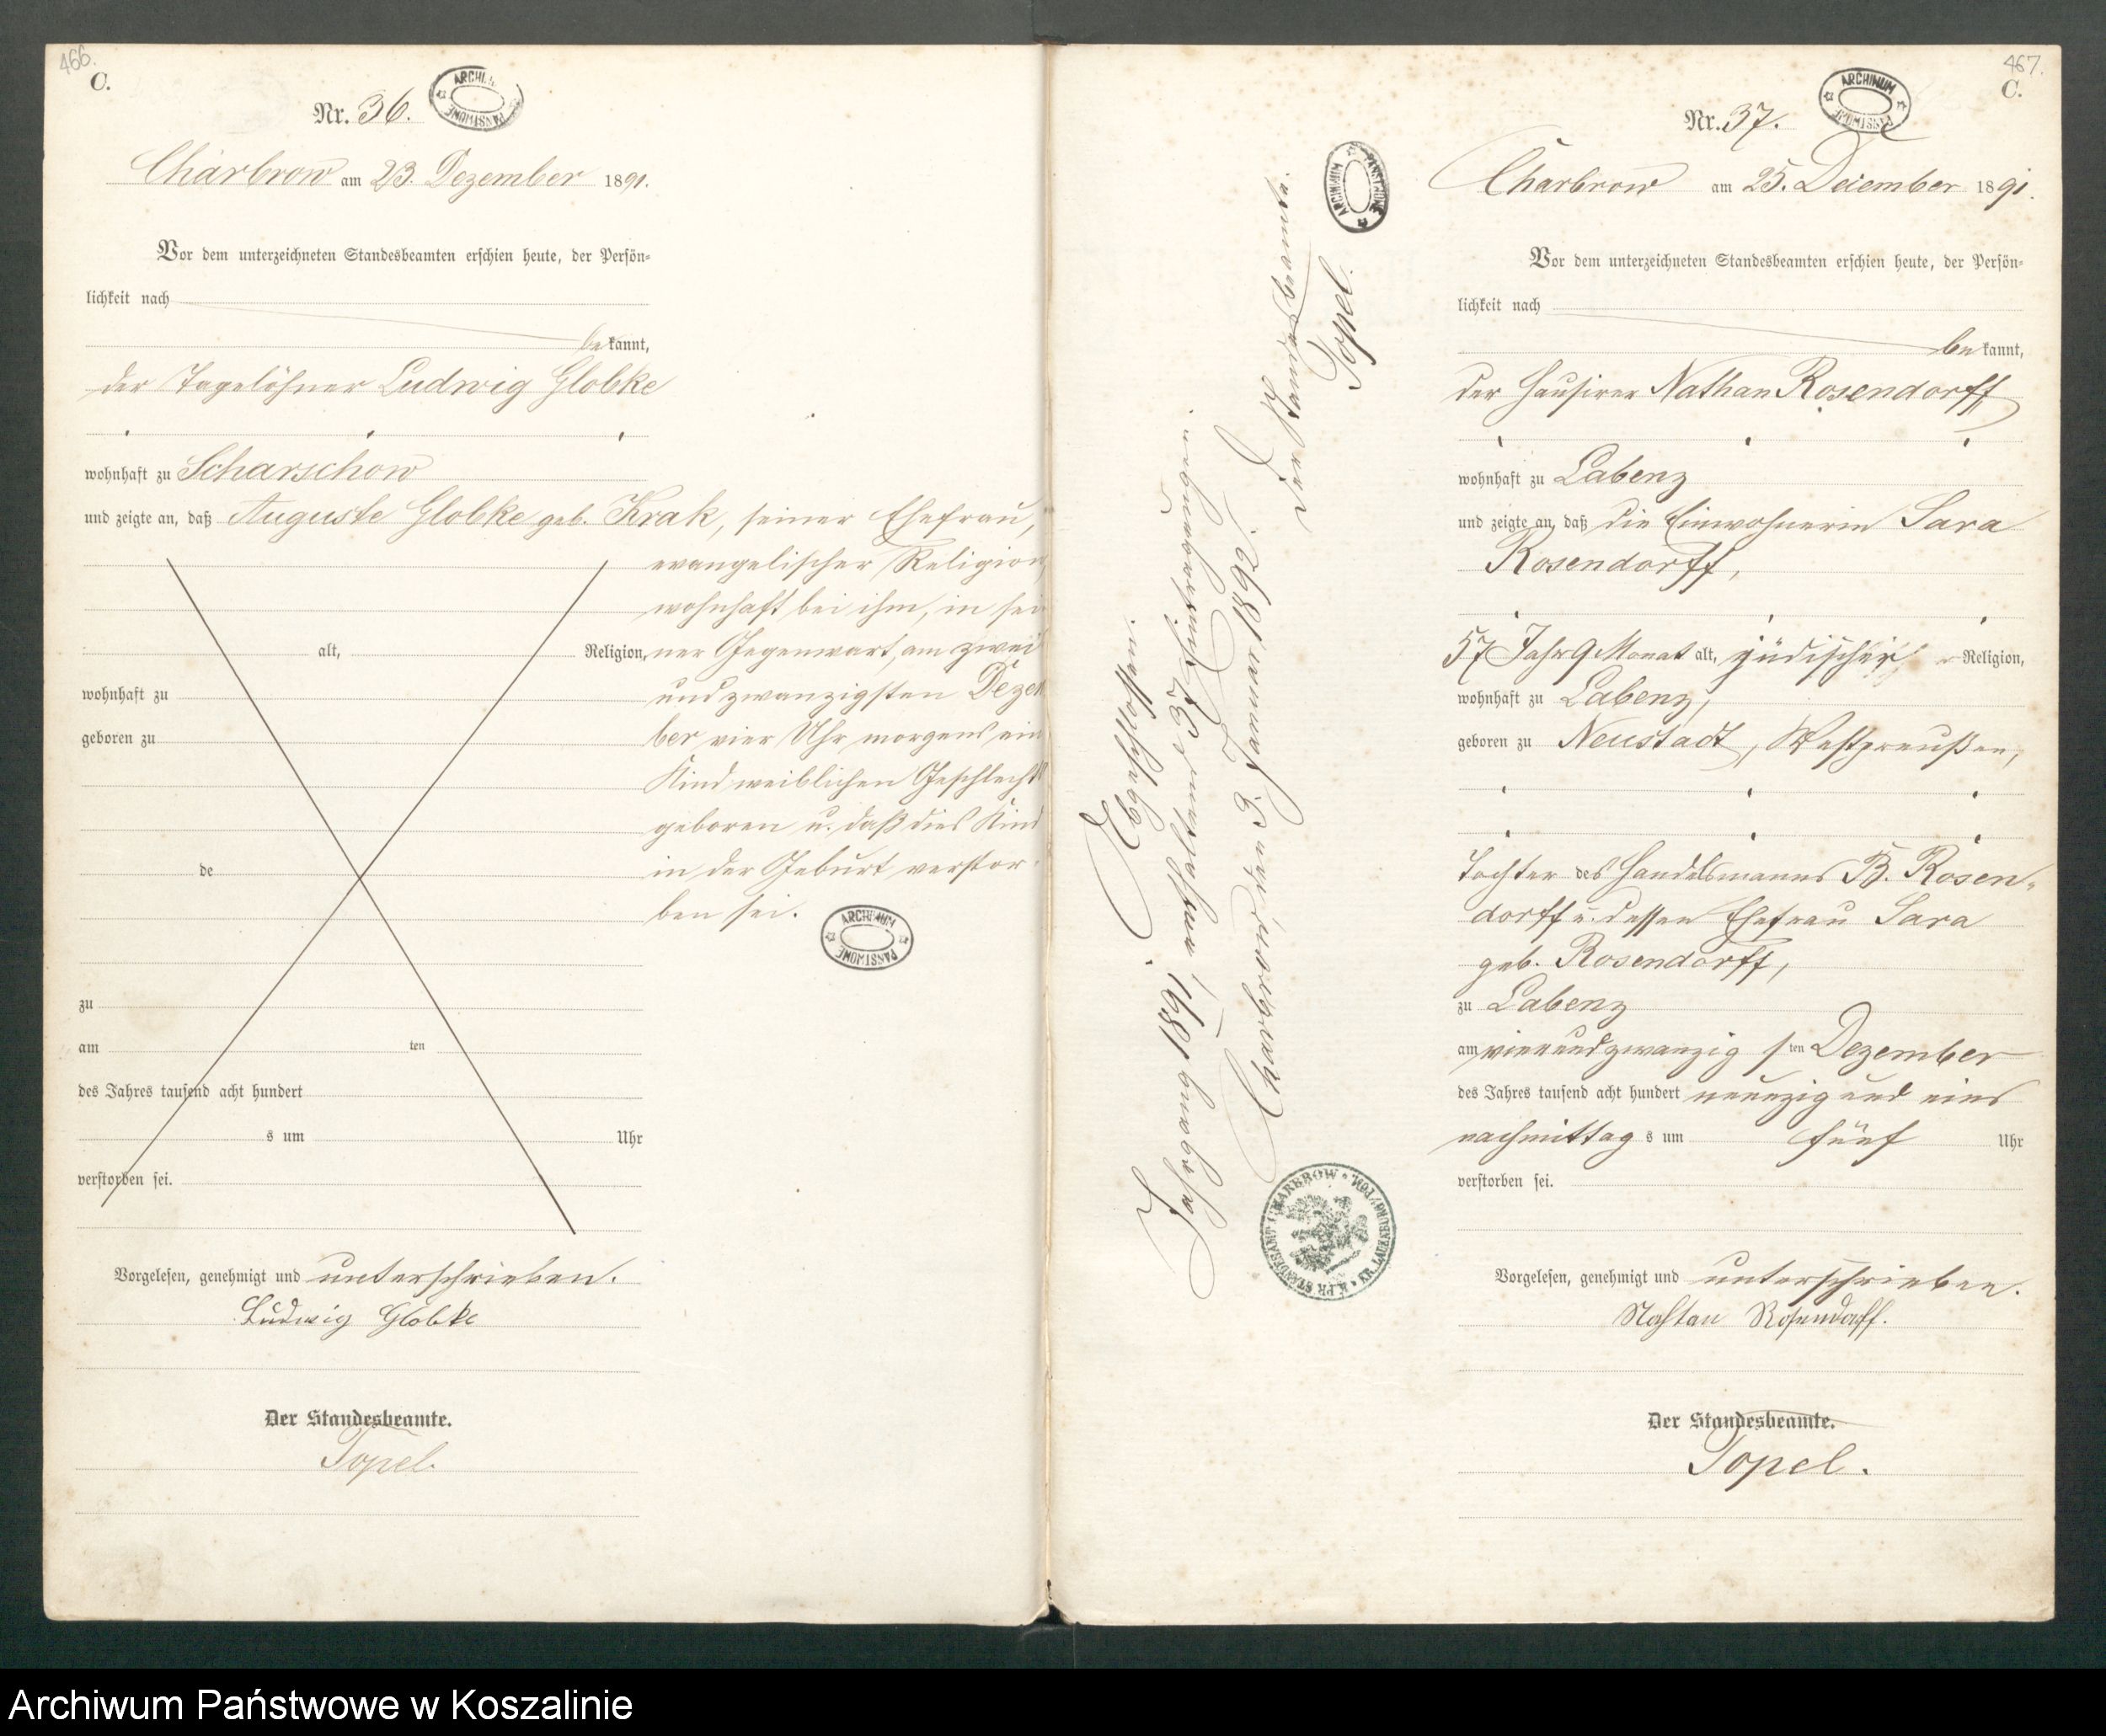 466.
C.
Nr. 36.
ARCHIWUM PAŃSTWOWE
Charbrow am 23. Dezember 1891.
Vor dem unterzeichneten Standesbeamten erschien heute, der Persön-
lichkeit nach
bekannt,
der Tagelöhner Ludwig Globke
wohnhaft zu Scharschow
und zeigte an, daß Auguste Globke geb. Krak, seiner Ehefrau,
evangelischer Religion,
wohnhaft bei ihm, in sei
alt, Religion, ner Gegenwart, am zwei
wohnhaft zu und zwanzigsten Dezem
geboren zu ber vier Uhr morgens ein
Kind weiblichen Geschlechts
geboren u. daß dies Kind
de in der Geburt verstor-
ben sei.
ARCHIWUM PAŃSTWOWE
zu
am ten
des Jahres tausend acht hundert
s um Uhr
verstorben sei.
Vorgelesen, genehmigt und unterschrieben.
Ludwig Globke
Der Standesbeamte.
Topel.
467.
C.
Nr. 37.
ARCHIWUM PAŃSTWOWE
Charbrow am 25. Dezember 1891.
Vor dem unterzeichneten Standesbeamten erschien heute, der Persön-
lichkeit nach
bekannt,
der Hausirer Nathan Rosendorff
wohnhaft zu Labenz
und zeigte an, daß die Einwohnerin Sara
Rosendorff,
57 Jahr 9 Monat alt, jüdischer Religion,
wohnhaft zu Labenz,
geboren zu Neustadt, Westpreußen,
Tochter des Handelsmanns B. Rosen-
dorff u. dessen Ehefrau Sara
geb. Rosendorff,
zu Labenz
am vierundzwanzigsten Dezember
des Jahres tausend acht hundert neunzig und eins
nachmittags um fünf Uhr
verstorben sei.
Vorgelesen, genehmigt und unterschrieben.
Nathan Rosendorff.
Der Standesbeamte.
Topel.
Abgeschlossen.
Jahrgang 1891, enthaltend 37 Eintragungen.
Charbrow, den 3. Januar 1892.
Der Standesbeamte.
Topel.
ARCHIWUM PAŃSTWOWE
K. PR. STANDESAMT CHARBROW • KR. LAUENBURG/POM.
Archiwum Państwowe w Koszalinie